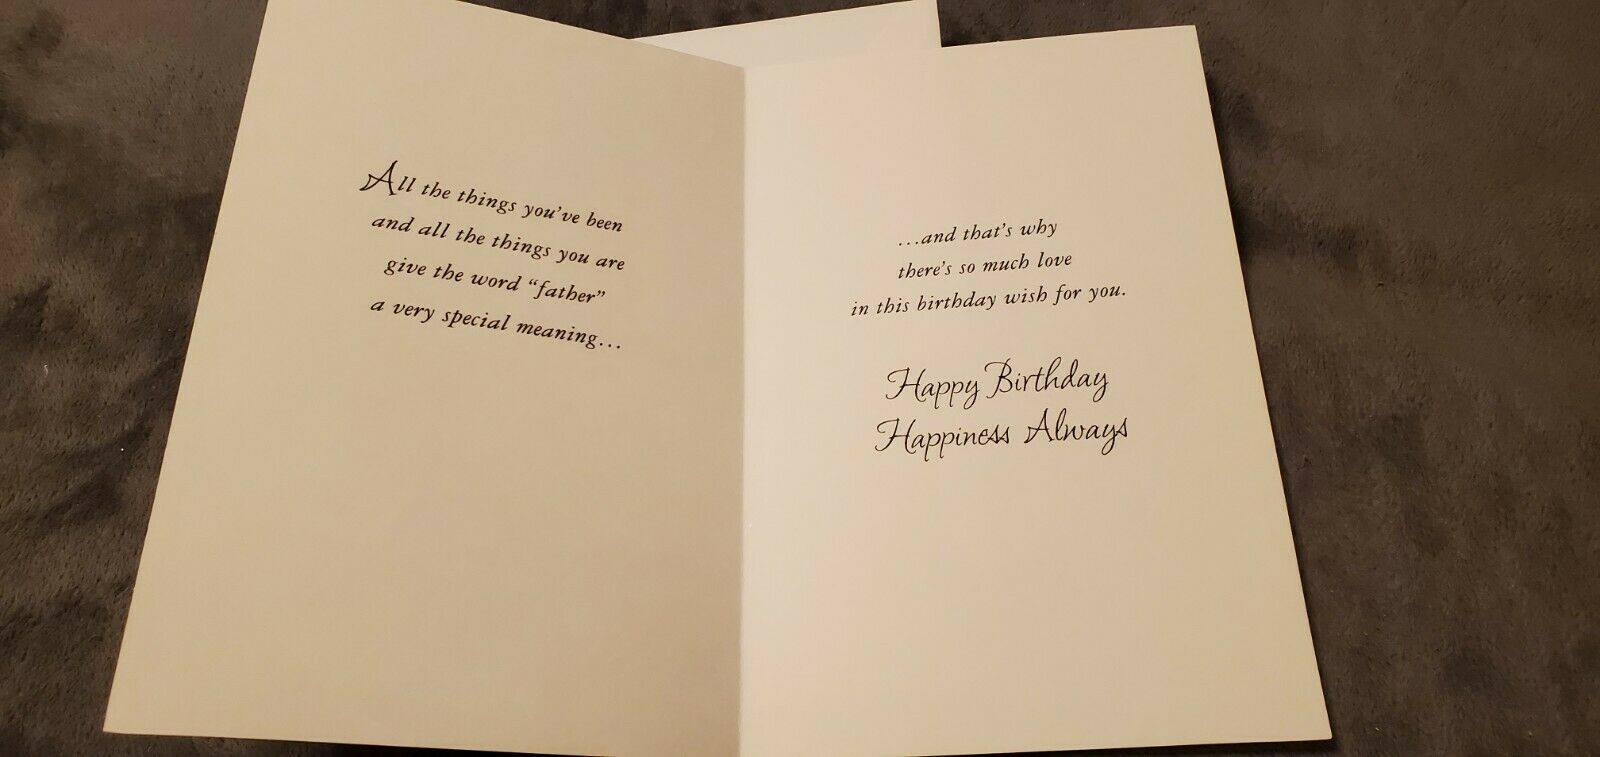 All the things you've been
and all the things you are
give the word “father”
a very special meaning...
...and that's why
there's so much love
in this birthday wish for you.
Happy Birthday
Happiness Always